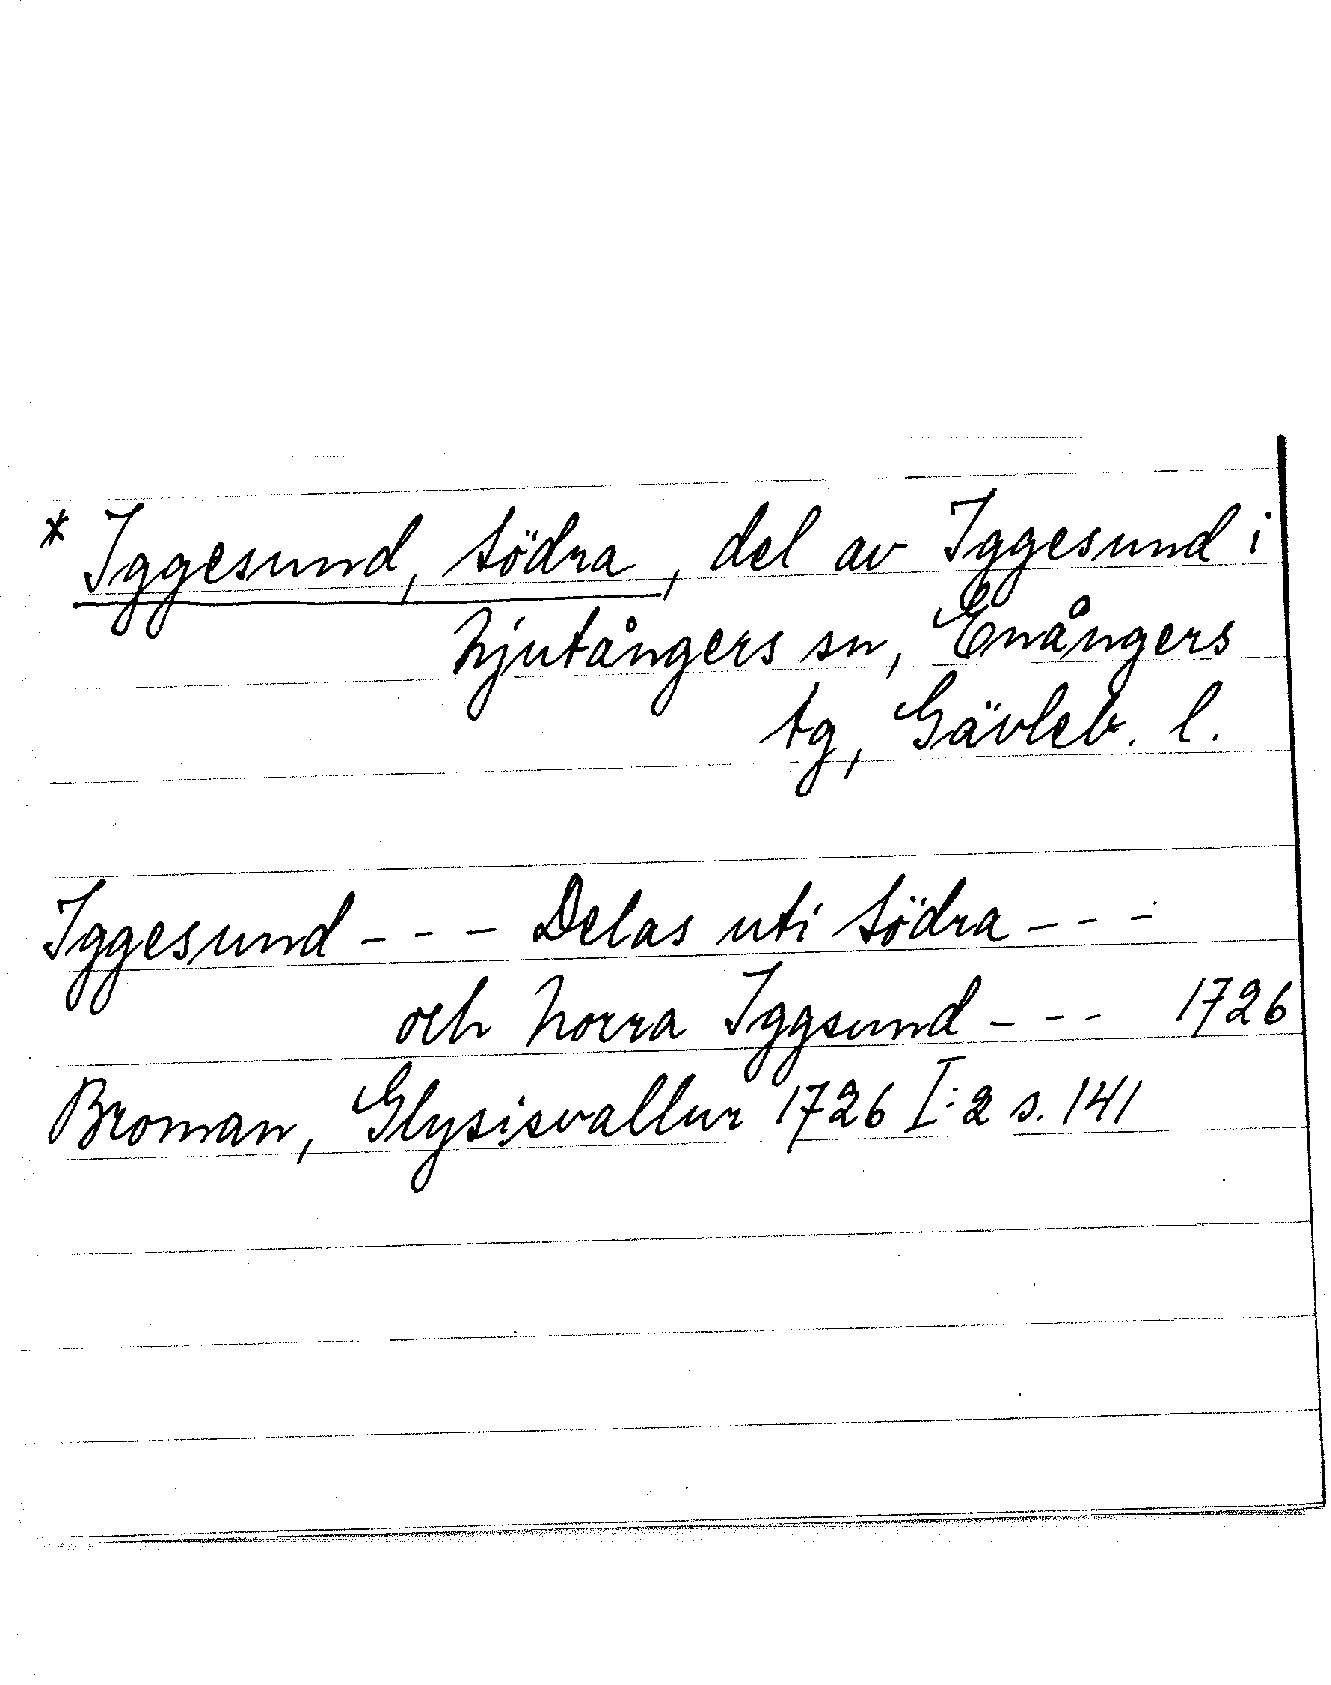 * Iggesund, Södra, del av Iggesund i
Njutångers sn, Enångers
tg, Gävleb. l.
Iggesund - - - Delas uti Södra - - -
och Norra Iggsund - - - 1726
Broman, Glysisvallur 1726 I:2 s. 141